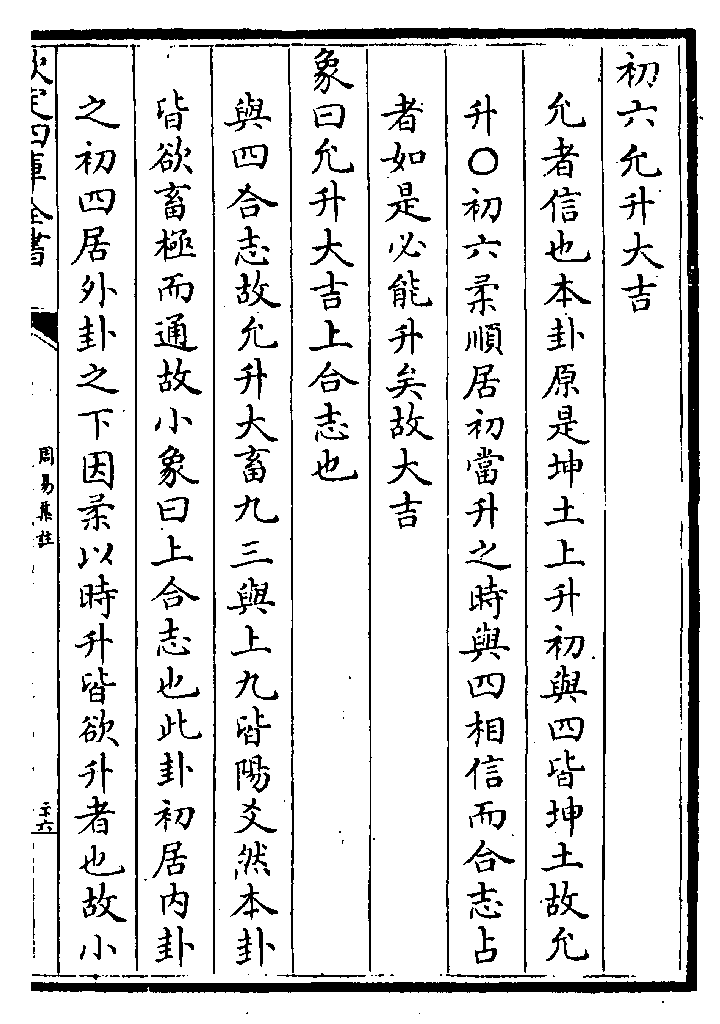 初六允升大吉
允者信也本卦原是坤土上升初與四皆坤土故允
升○初六柔順居初當升之時與四相信而合志占
者如是必能升矣故大吉
象曰允升大吉上合志也
與四合志故允升大畜九三與上九皆陽爻然本卦
皆欲畜極而通故小象曰上合志也此卦初居內卦
之初四居外卦之下因柔以時升皆欲升者也故小
欽定四庫全書
周易集註
二十六